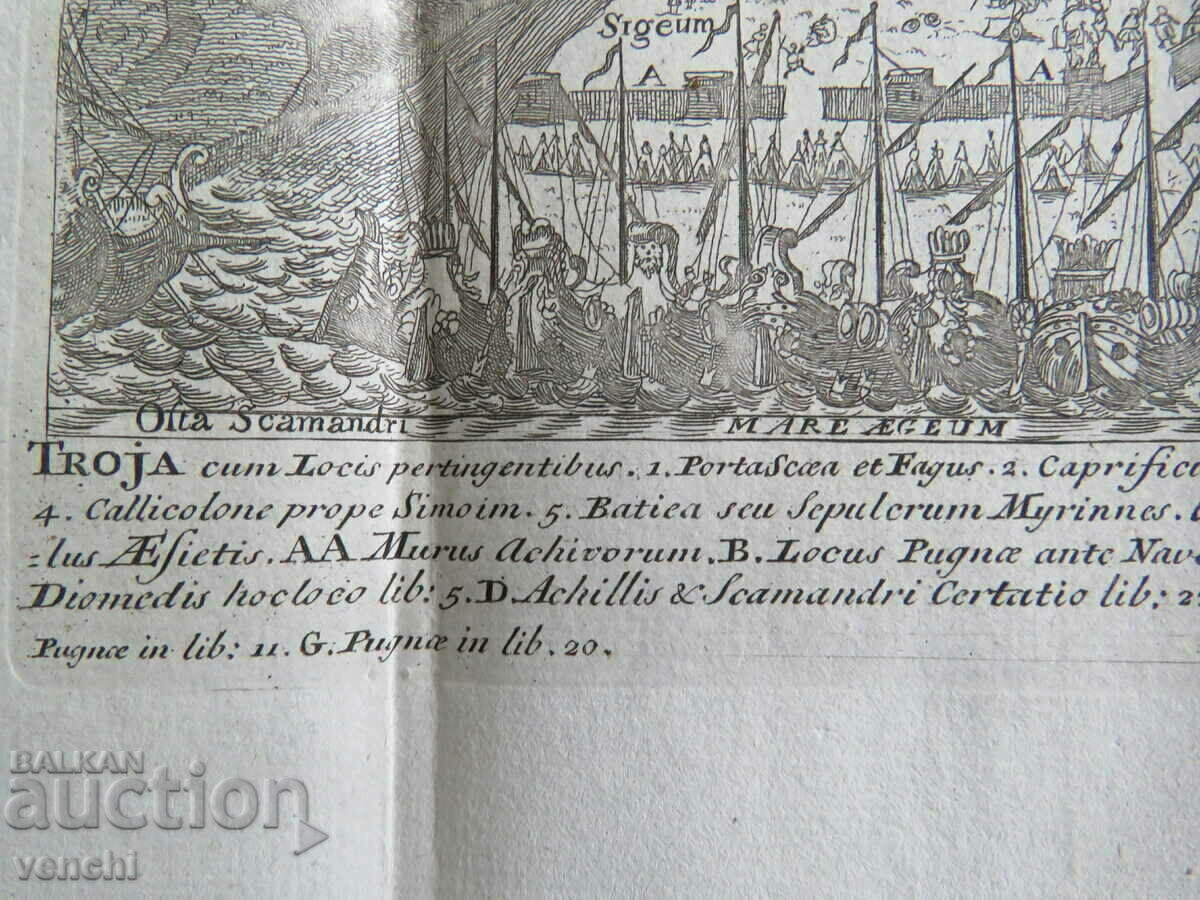 Sigeum
A A
Osta Scamandri MARE ÆGEUM
TROJA cum Locis pertingentibus. 1. Porta Scæa et Fagus. 2. Caprific
4. Callicolone prope Simoim. 5. Batiea seu Sepulcrum Myrinnes.
=lus Æsietis. AA Murus Achivorum. B. Locus Pugnæ ante Nav
Diomedis hocloco lib: 5. D. Achillis & Scamandri Certatio lib: 2
Pugnæ in lib: 11. G. Pugnæ in lib. 20.
BALKAN
auction
venchi